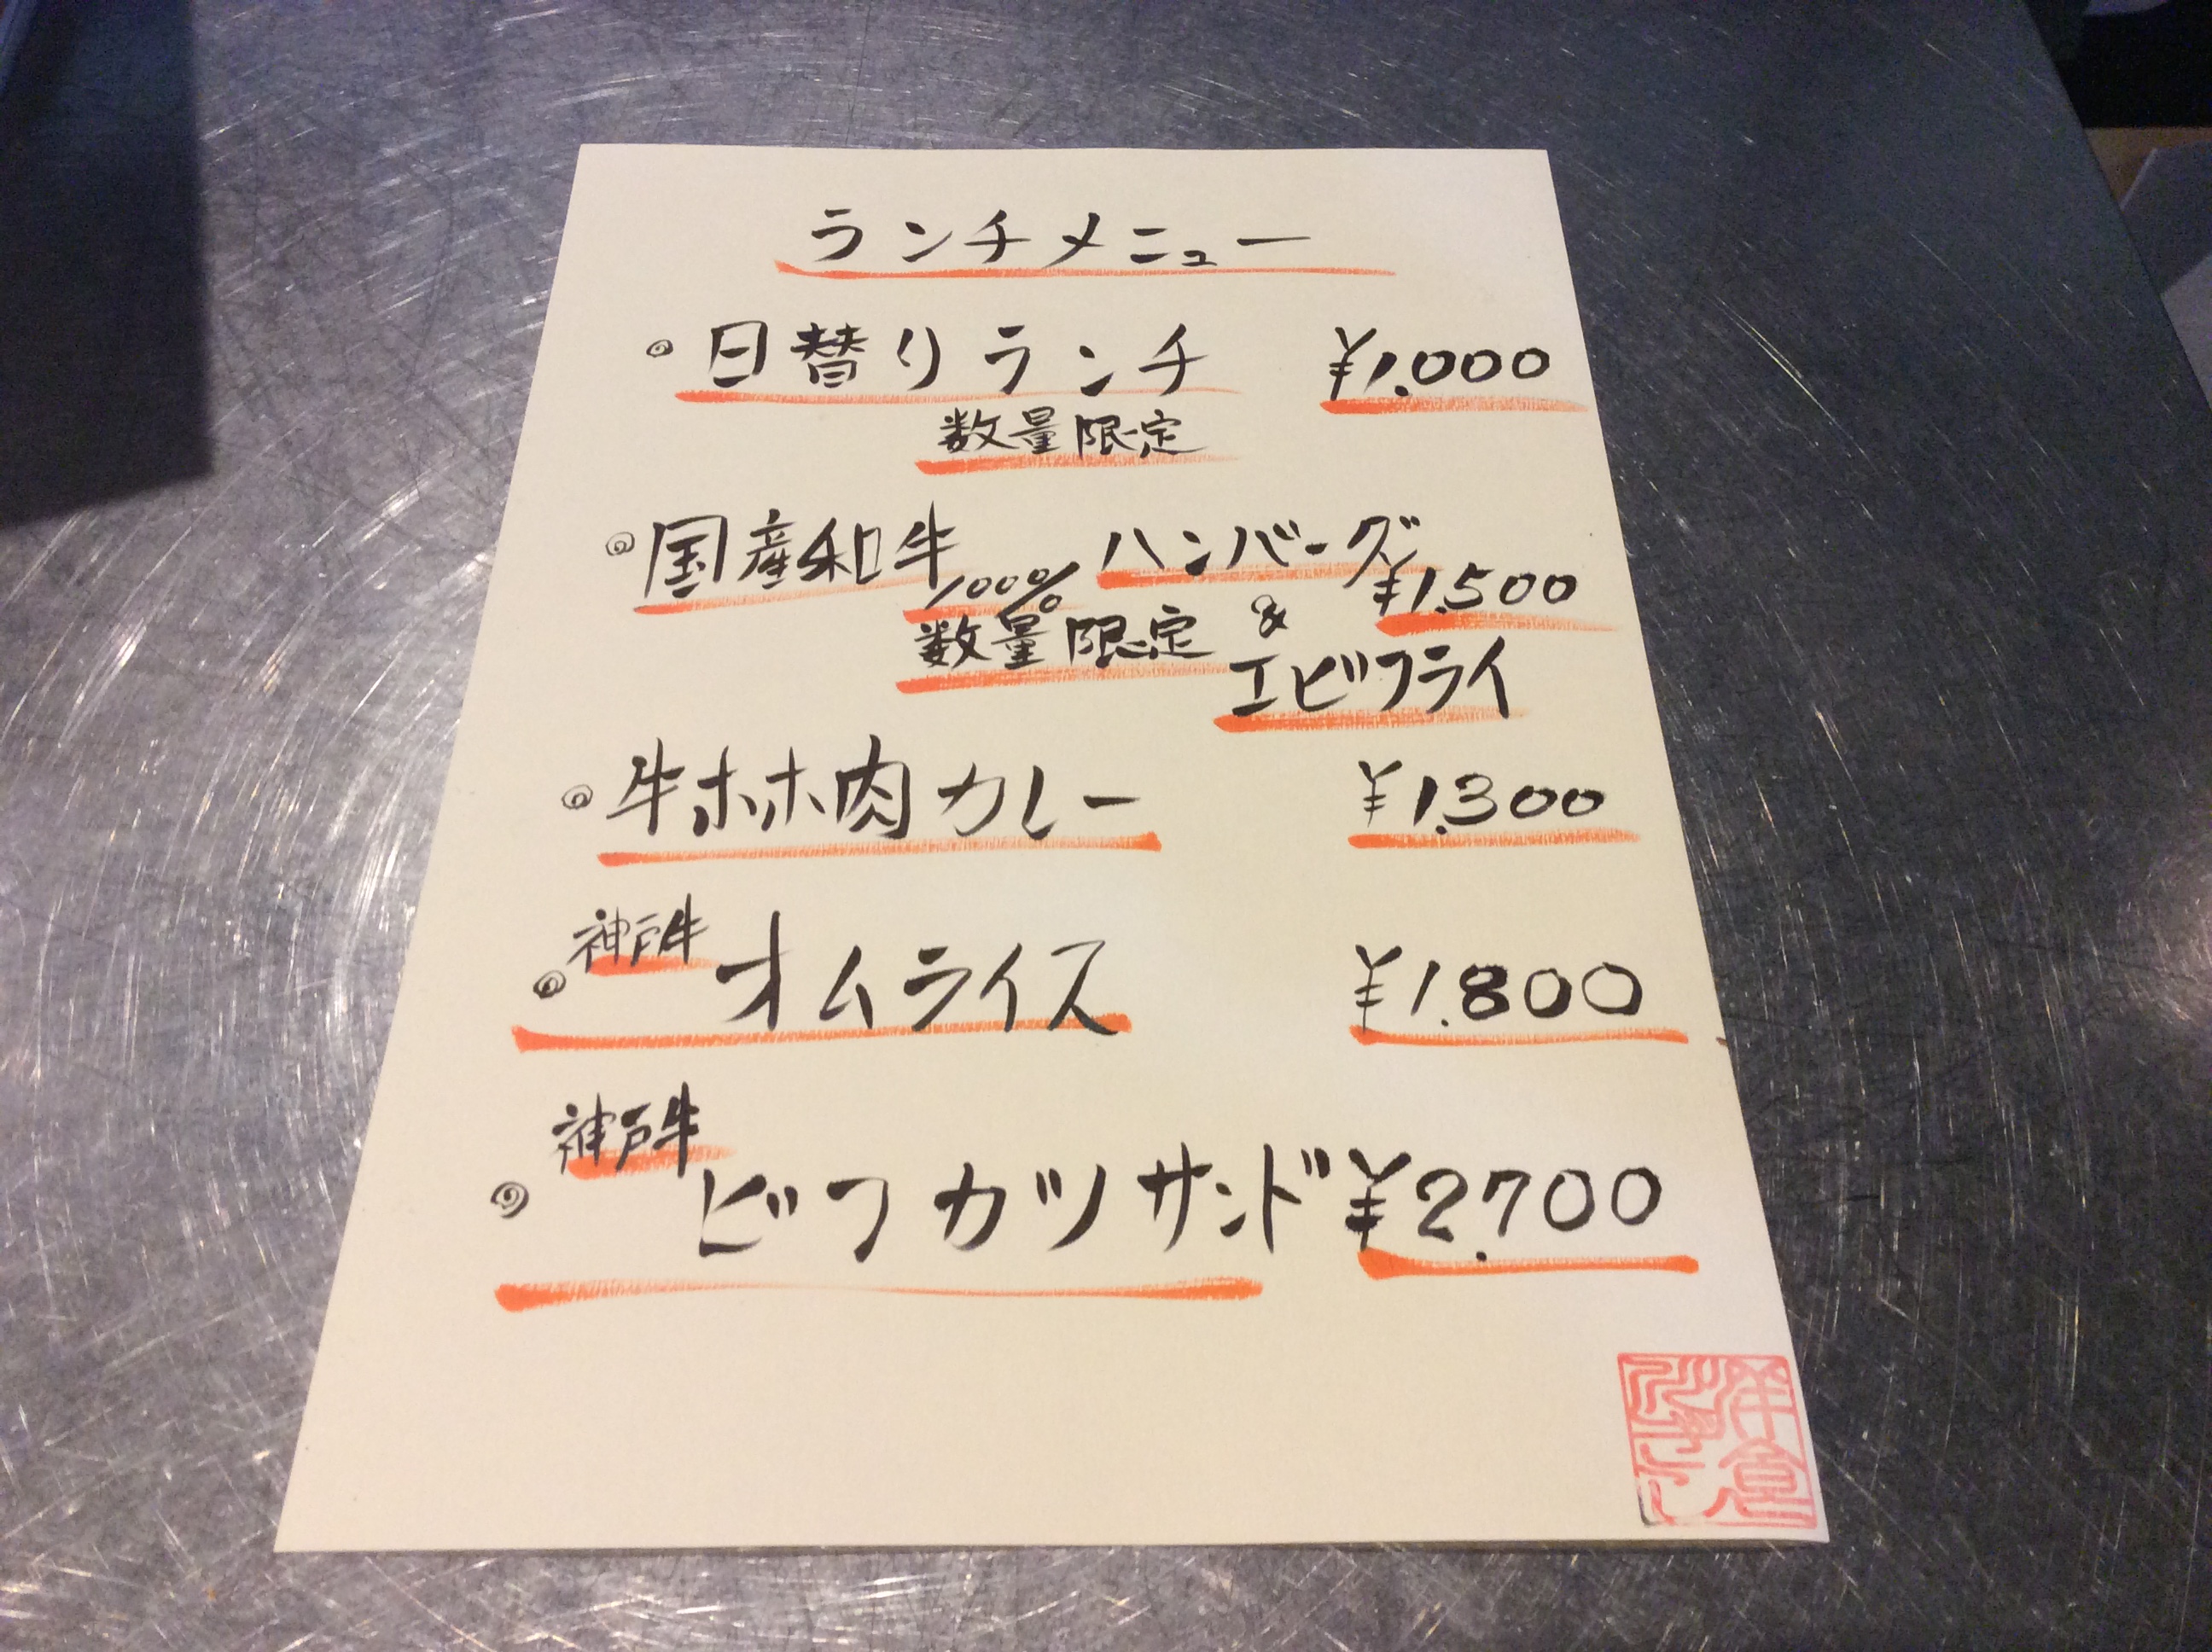 ランチメニュー
日替りランチ ¥1.000
数量限定
国産和牛100% ハンバーグ
& ¥1.500
数量限定 エビフライ
牛ホホ肉カレー ¥1.300
神戸牛オムライス ¥1.800
神戸牛ビフカツサンド ¥2.700
洋食